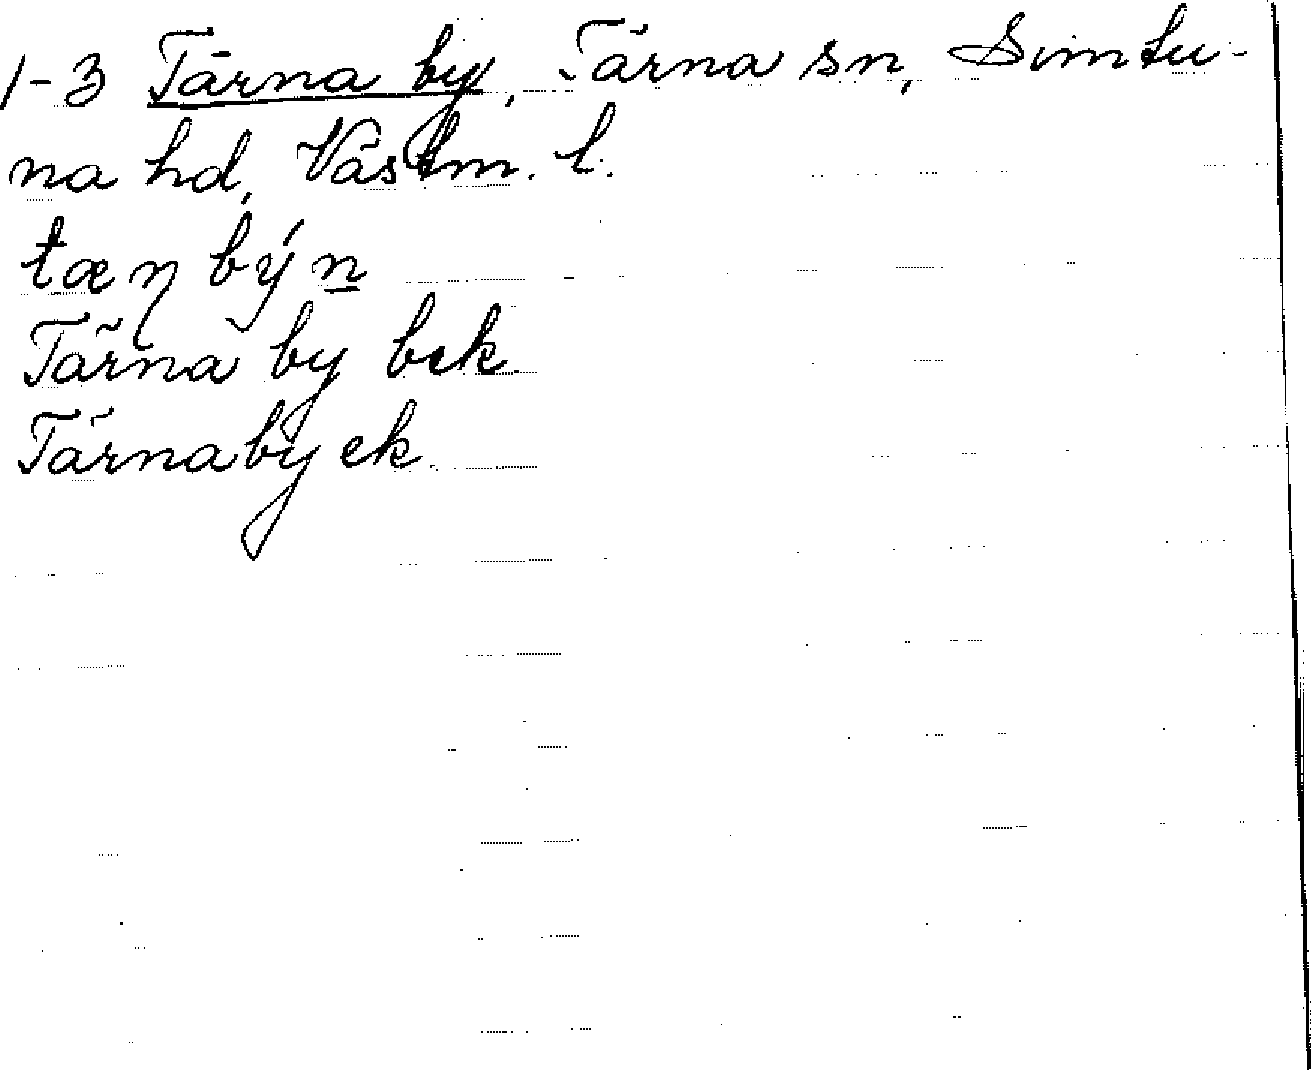 1-3 Tärna by, Tärna sn, Simtu-
na hd, Västm. l.
tæɳ býn
Tärna by bek.
Tärnaby ek.